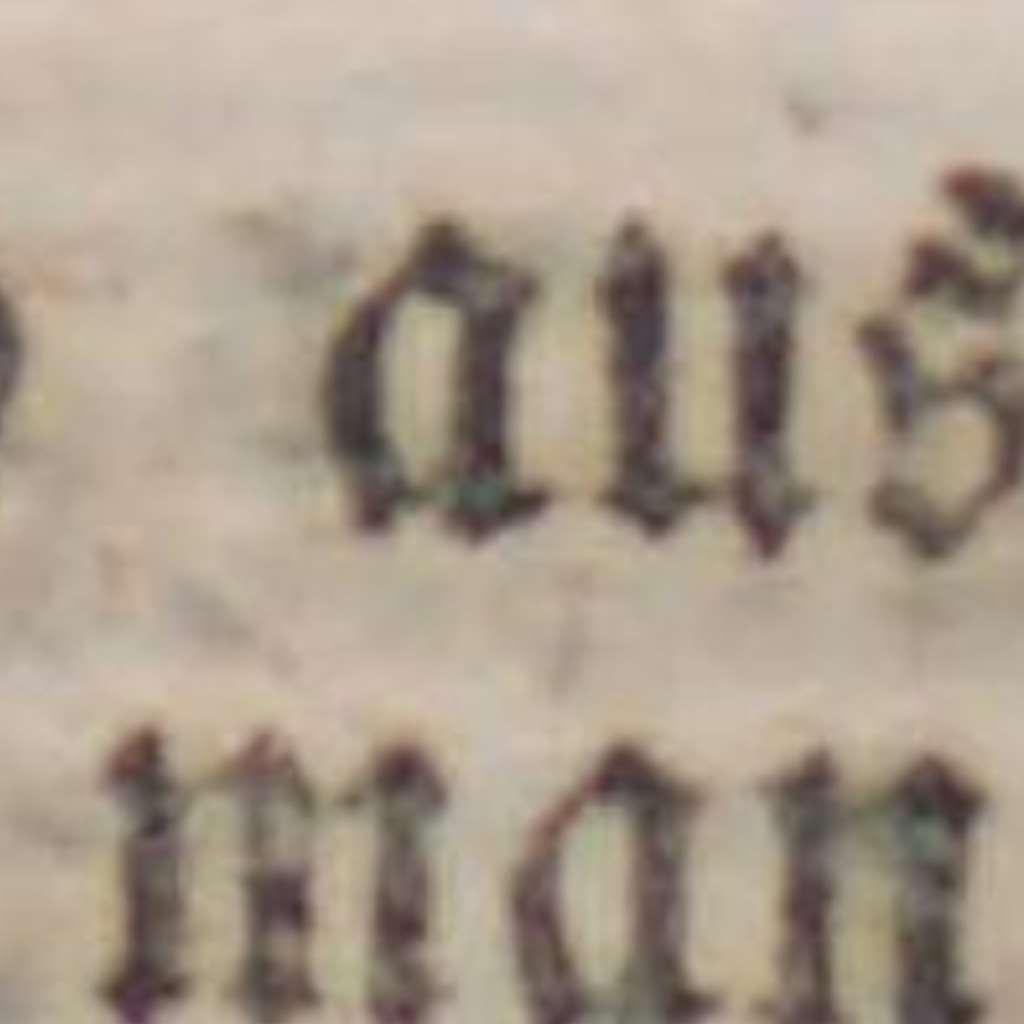 aus
man